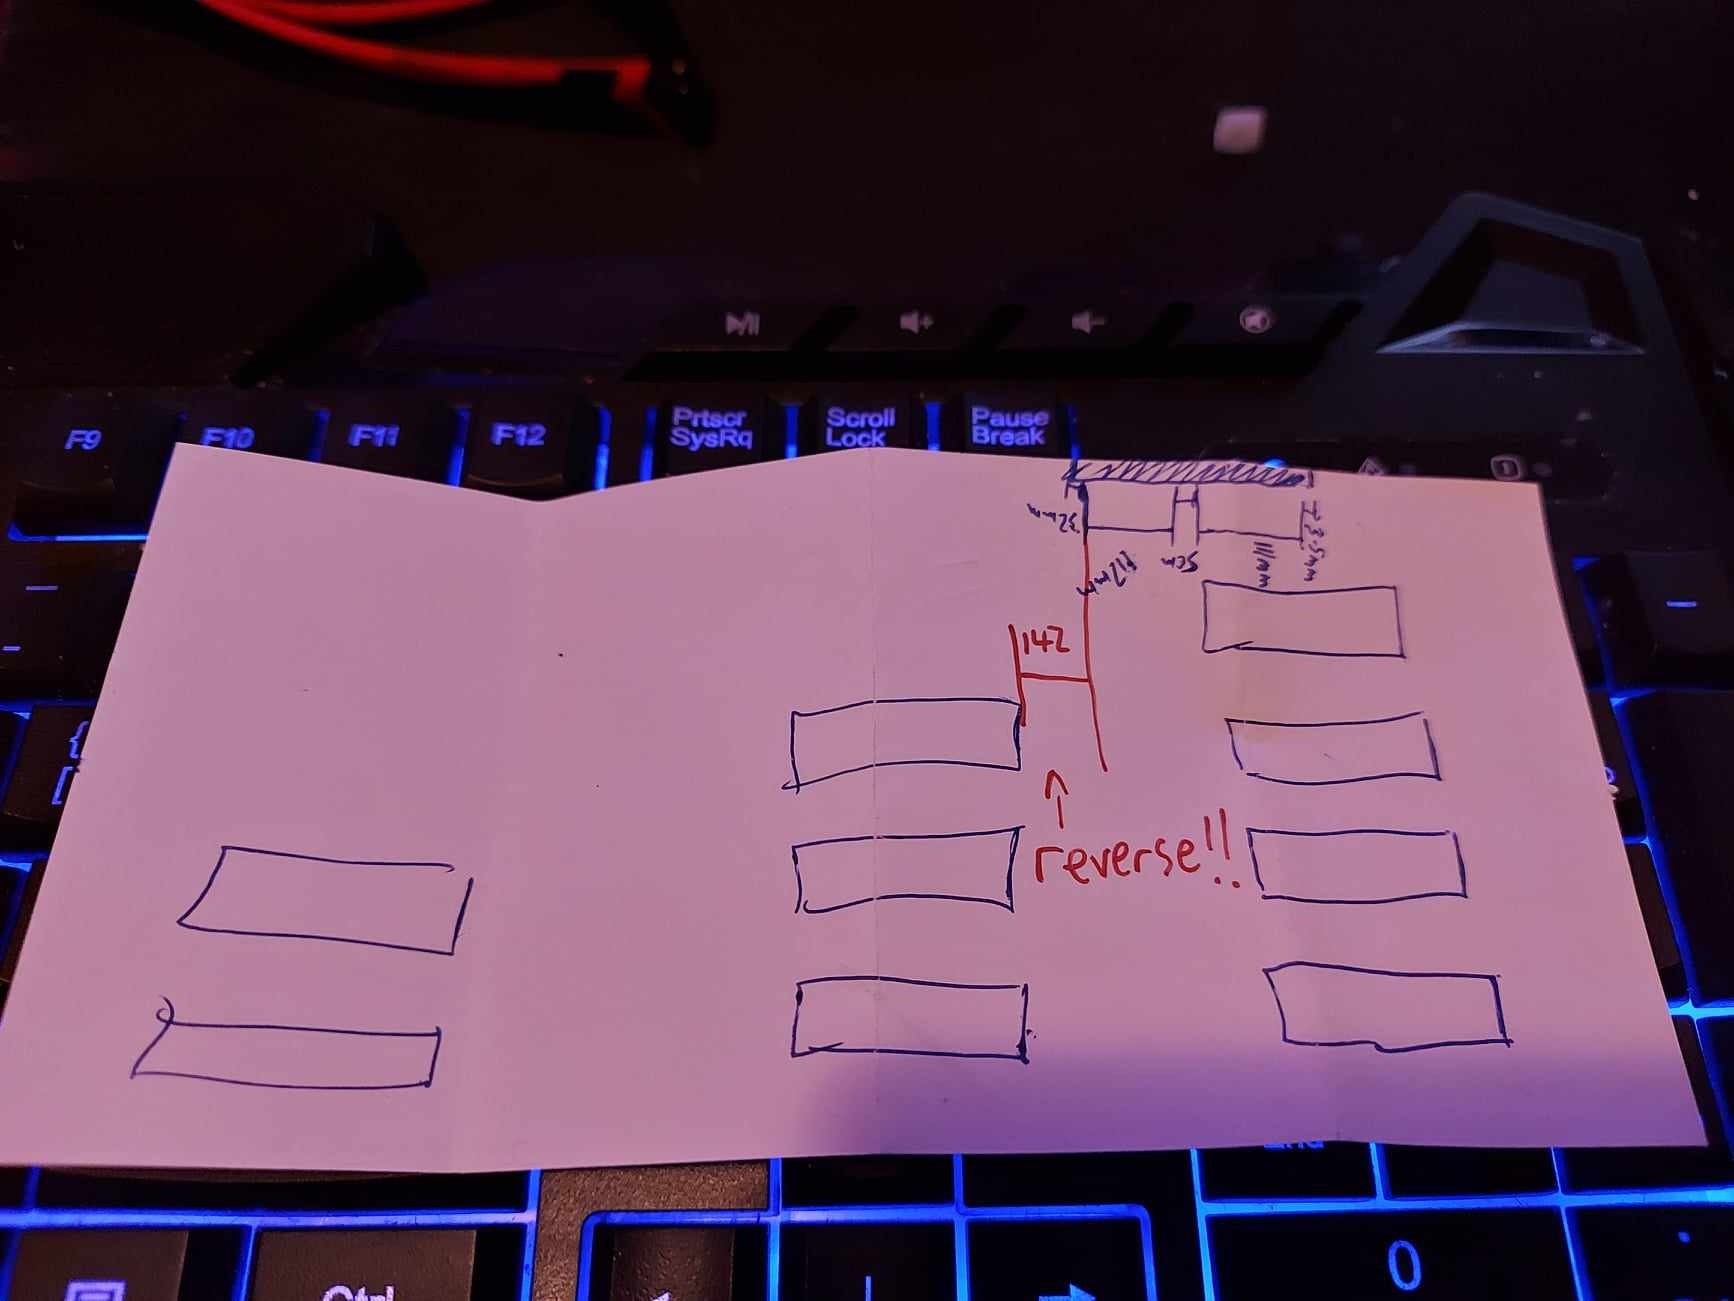 F9
F10
F11
F12
Prtscr
SysRq
Scroll
Lock
Pause
Break
32mm
5cm
111mm
3.5mm
142
reverse!!
Ctrl
0